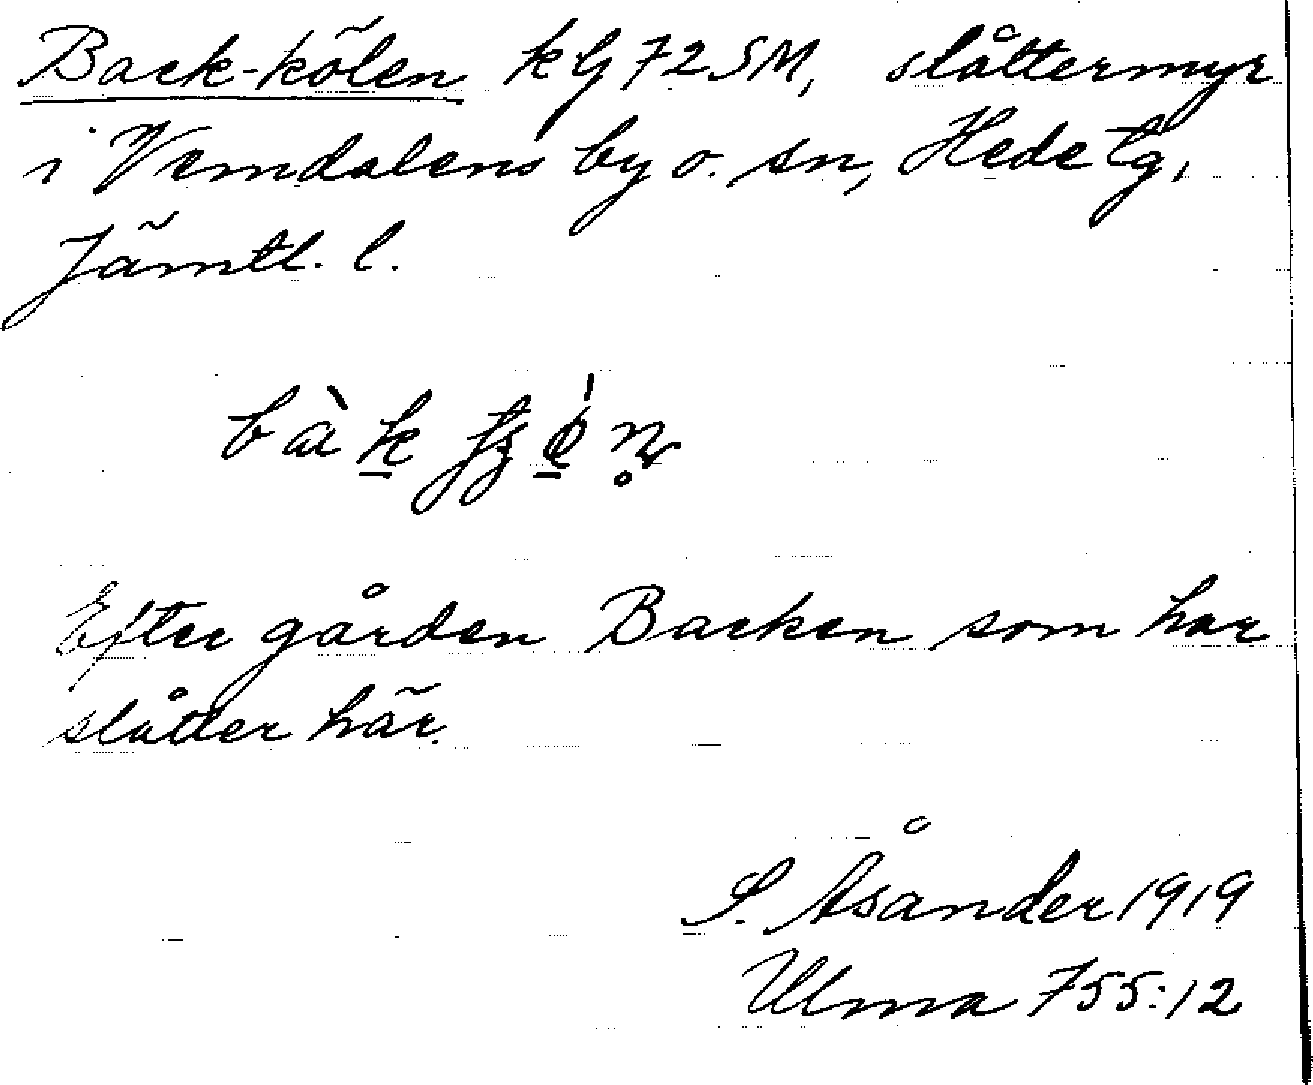 Back-kölen kbl 72 SM, slåttermyr
i Vemdalens by o. sn, Hede tg,
Jämtl. l.
Efter gården Backen som har
slåtter här.
S. Åsander 1919
Ulma 755:12